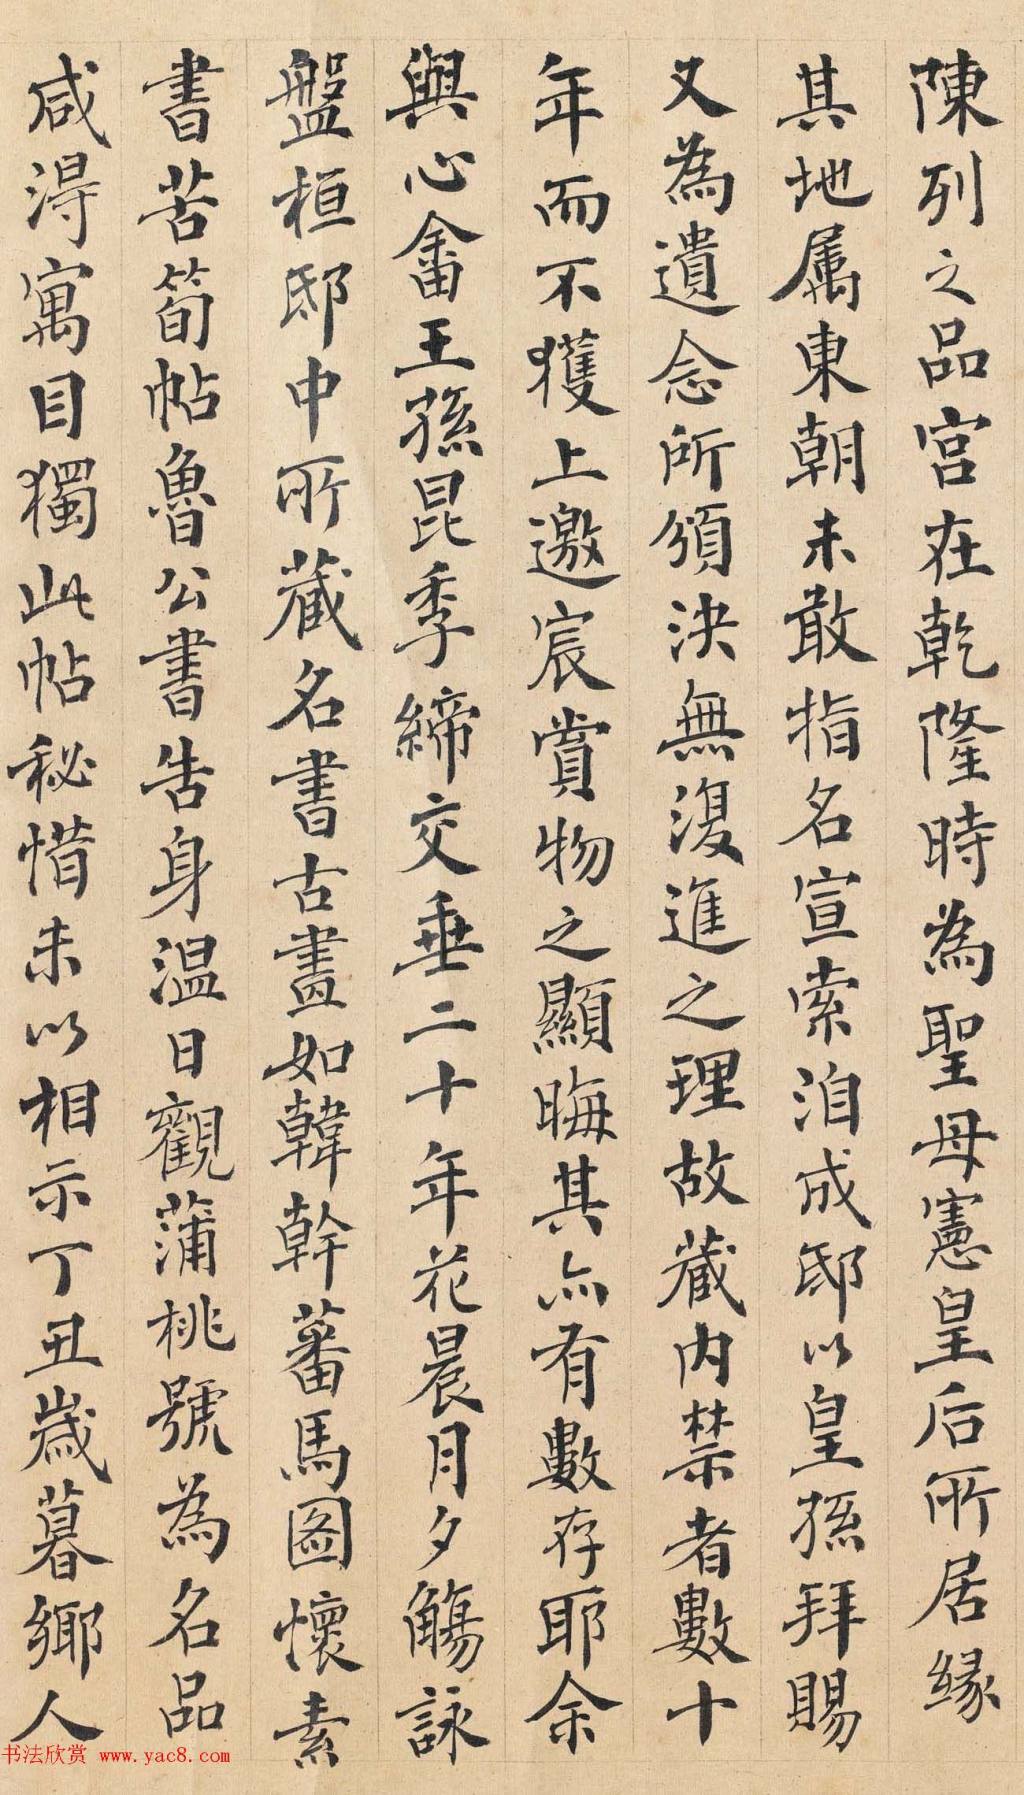 陳列之品宮在乾隆時為聖母憲皇后所居緣
其地属東朝未敢指名宣索洎成邸以皇孫拜賜
又為遺念所頒決無復進之理故藏内禁者數十
年而不獲上邀宸賞物之顯晦其亦有數存耶余
與心畬王孫昆季締交垂二十年花晨月夕觴詠
盤桓邸中所藏名書古畫如韓幹蕃馬圖懷素
書苦筍帖魯公書告身温日觀蒲桃號為名品
咸得寓目獨此帖秘惜未以相示丁丑歳暮鄉人
书法欣赏 www.yac8.com